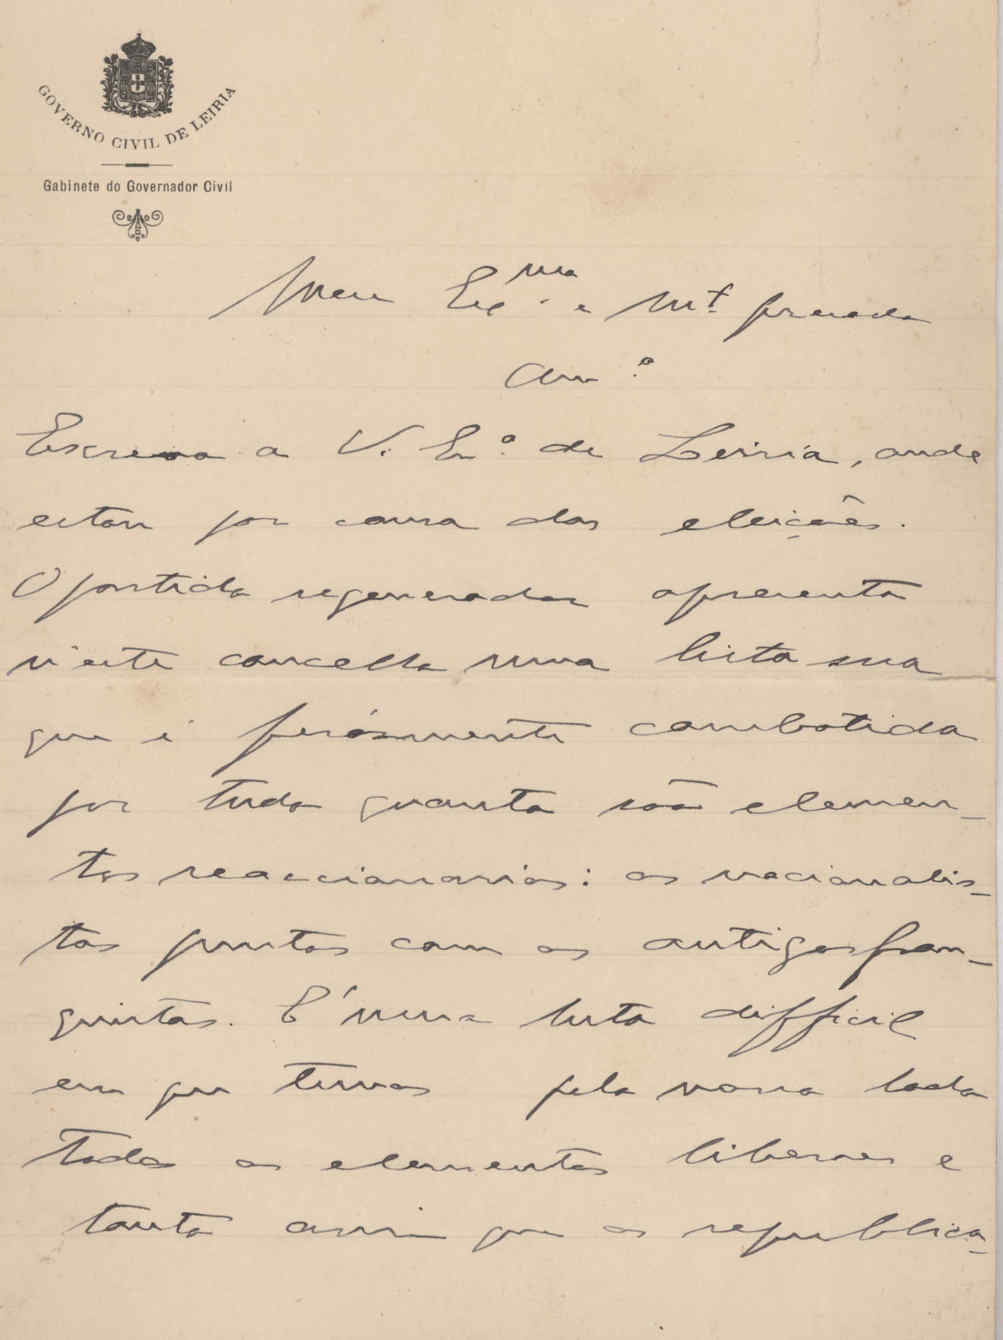 GOVERNO CIVIL DE LEIRIA
Gabinete do Governador Civil
Meu Exmo. e Mt. presado
Amº.
Escrevo a V. Exª. de Leiria, onde
estou por causa das eleições.
O partido regenerador apresenta
n'este concelho uma lista sua
que é ferósmente combatida
por tudo quanto são elemen-
tos reaccionarios: os nacionalis-
tas juntos com os antigos fran-
quistas. É uma luta difficil
em que temos pela nossa lado
todos os elementos liberaes e
tanto assim que os republica-